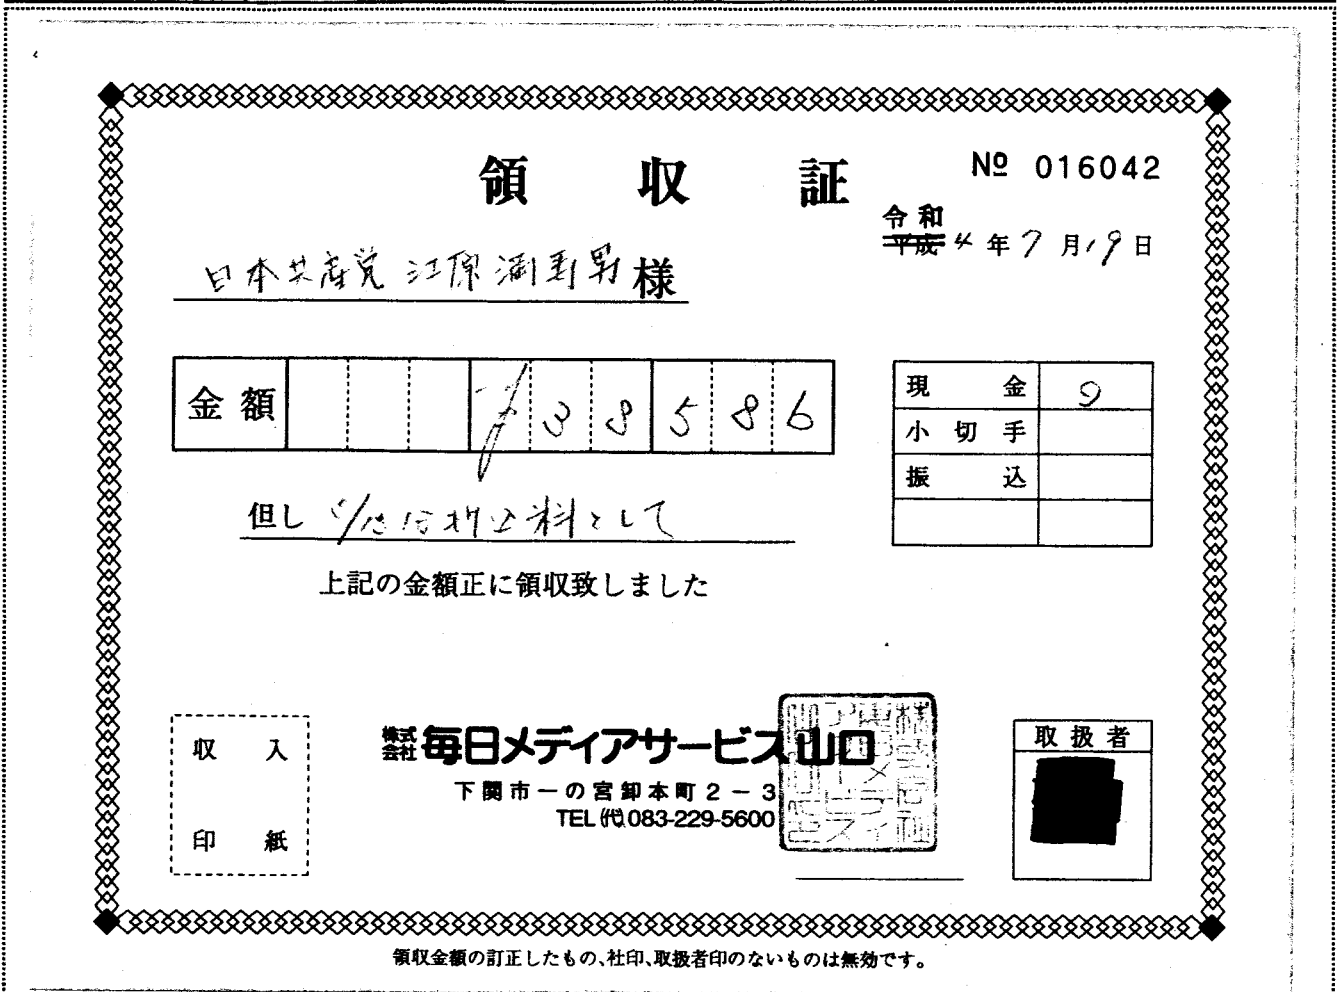 領収証
№ 016042
令和
平成 4年7月19日
日本共産党 江原満寿男様
金額 ¥38586
現金
小切手
振込
但し 折込料として
上記の金額正に領収致しました
収入
印紙
株式会社 毎日メディアサービス山口
下関市一の宮卸本町2-3
TEL(代)083-229-5600
取扱者
領収金額の訂正したもの、社印、取扱者印のないものは無効です。